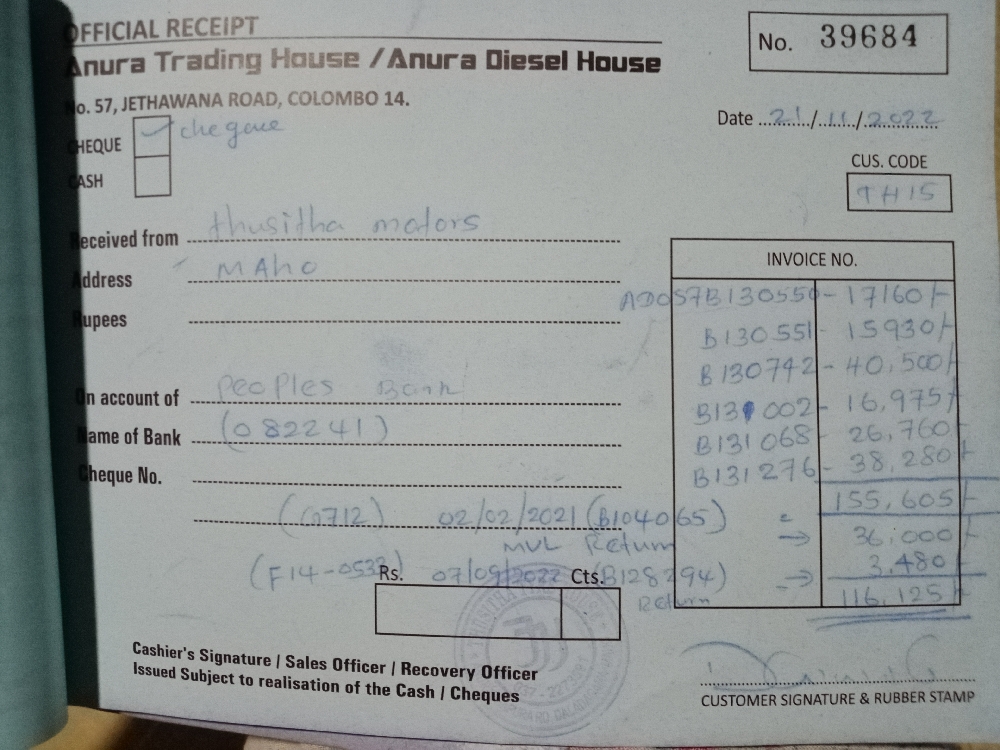 OFFICIAL RECEIPT
Anura Trading House / Anura Diesel House
No. 57, JETHAWANA ROAD, COLOMBO 14.
No. 39684
Date 21/11/2022
CHEQUE chegeue
CASH
CUS. CODE
TH15
Received from thusitha motors
Address MAho
Rupees
On account of Peoples Bank
Name of Bank (082241)
Cheque No.
INVOICE NO.
AD057B130550 - 17160/-
B130551 - 15930/-
B130742 - 40,500/-
B131002 - 16,975/-
B131068 - 26,760/-
B131276 - 38,280/-
155,605/-
(G712) 02/02/2021 (B104065) → 36,000/-
MVL Return
(F14-0533) 07/09/2022 (B128294) → 3,480/-
Return
116,125/-
Rs. Cts.
Cashier's Signature / Sales Officer / Recovery Officer
Issued Subject to realisation of the Cash / Cheques
CUSTOMER SIGNATURE & RUBBER STAMP